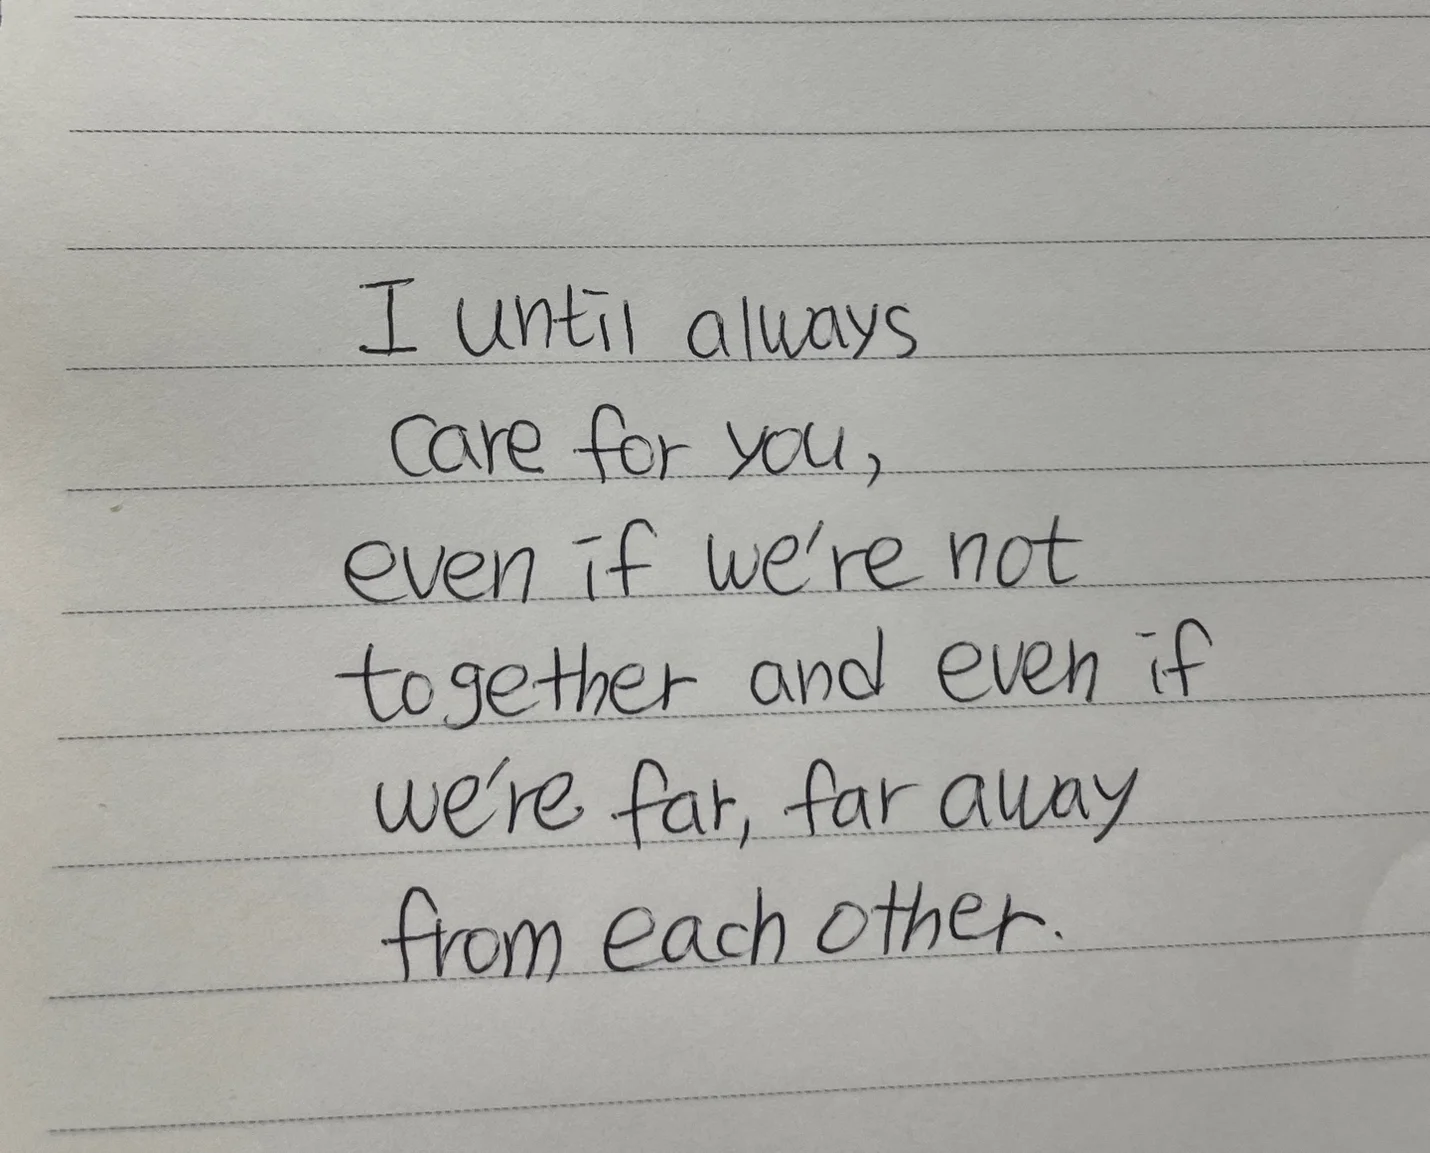 I until always
care for you,
even if we're not
together and even if
we're far, far away
from each other.